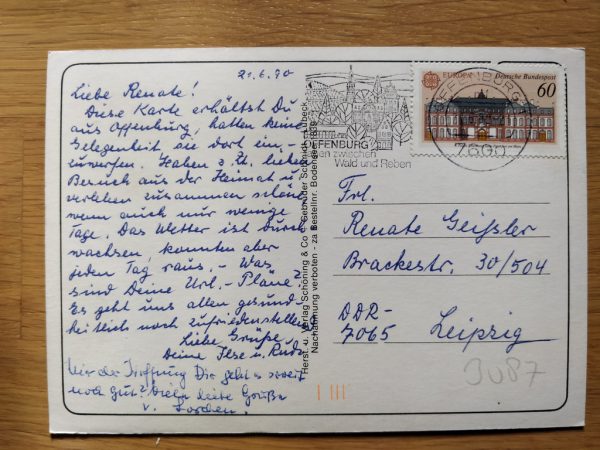 21.6.90
Liebe Renate!
Diese Karte erhältst Du
aus Offenburg, hatten keine
Gelegenheit sie dort ein-
zuwerfen. Haben z. Zt. lieben
Besuch aus der Heimat u.
verleben zusammen schöne
wenn auch nur wenige
Tage. Das Wetter ist durch
wachsen, konnten aber
jeden Tag raus. - Was
sind Deine Url.-Pläne?
Es geht uns allen gesund-
heitlich noch zufriedenstellend
Liebe Grüße
Deine Ilse u. Rudi
der Hoffnung Dir geht es soweit
noch gut? liebe Grüße
v.
Herst. u. Verlag Schöning & Co + Gebrüder Schmidt, Lübeck
Nachahmung verboten - za Bestellnr. Bodensee 1839
OFFENBURG
zwischen
Wald und Reben
OFFENBURG
7600
EUROPA
Deutsche Bundespost
60
Frl.
Renate Geißler
Brackestr. 30/504
DDR-
7065 Leipzig
3087